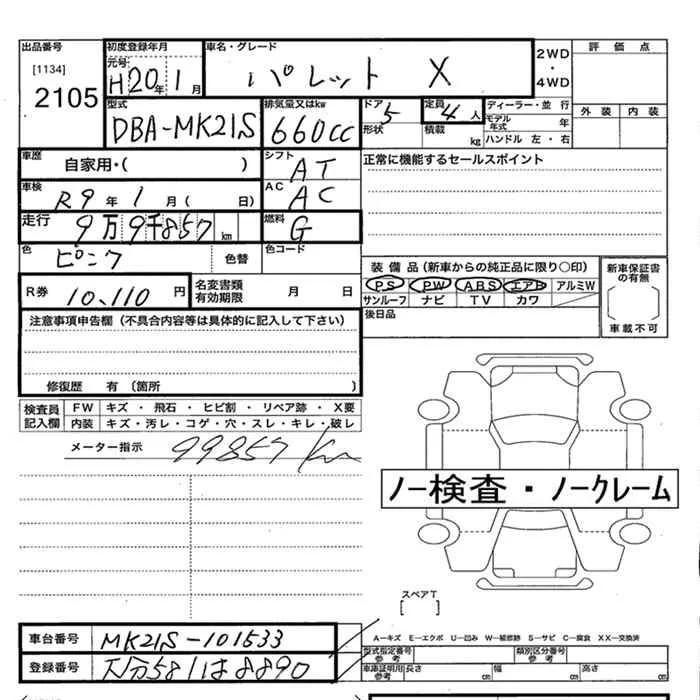 出品番号 初度登録年月 車名・グレード 2WD・4WD 評価点
[1134] 元号 H20年1月 パレット X
2105 外装 内装
型式 排気量又はkw ドア 5 定員 4人 ディーラー・並行
DBA-MK21S 660cc 形状 積載 kg モデル年式 年
ハンドル 左・右
車歴 自家用・( ) シフト AT 正常に機能するセールスポイント
車検 R9年1月( 日) AC AC
走行 9万9千857km 燃料 G
色 ピンク 色替 色コード
装備品(新車からの純正品に限り○印) 新車保証書の有無
R券 10,110円 名変書類有効期限 月 日 PS PW ABS エアB アルミW
サンルーフ ナビ TV カワ
注意事項申告欄(不具合内容等は具体的に記入して下さい) 後日品 車載不可
修復歴 有(箇所 )
検査員記入欄 FW キズ・飛石・ヒビ割・リペア跡・X要
内装 キズ・汚レ・コゲ・穴・スレ・キレ・破レ
メーター指示 99857km
ノー検査・ノークレーム
スペアT
[ ]
車台番号 MK21S-101533 A―キズ E―エクボ U―凹み W―補修跡 S―サビ C―腐食 XX―交換済
型式指定番号 参考 類別区分番号 参考
登録番号 大分581は8890 車庫証明用 参考 長さ cm 幅 cm 高さ cm